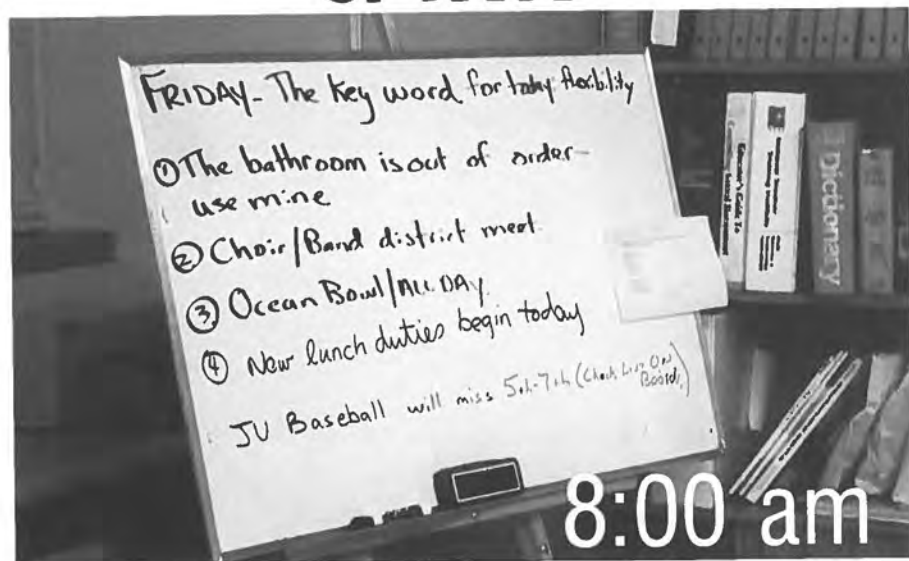 FRIDAY- The key word for today flexibility
① The bathroom is out of order-
use mine
② Choir/Band district meet
③ Ocean Bowl/ALL DAY
④ New lunch duties begin today
JV Baseball will miss 5th-7th (Check List ON
Board)
Dictionary
8:00 am